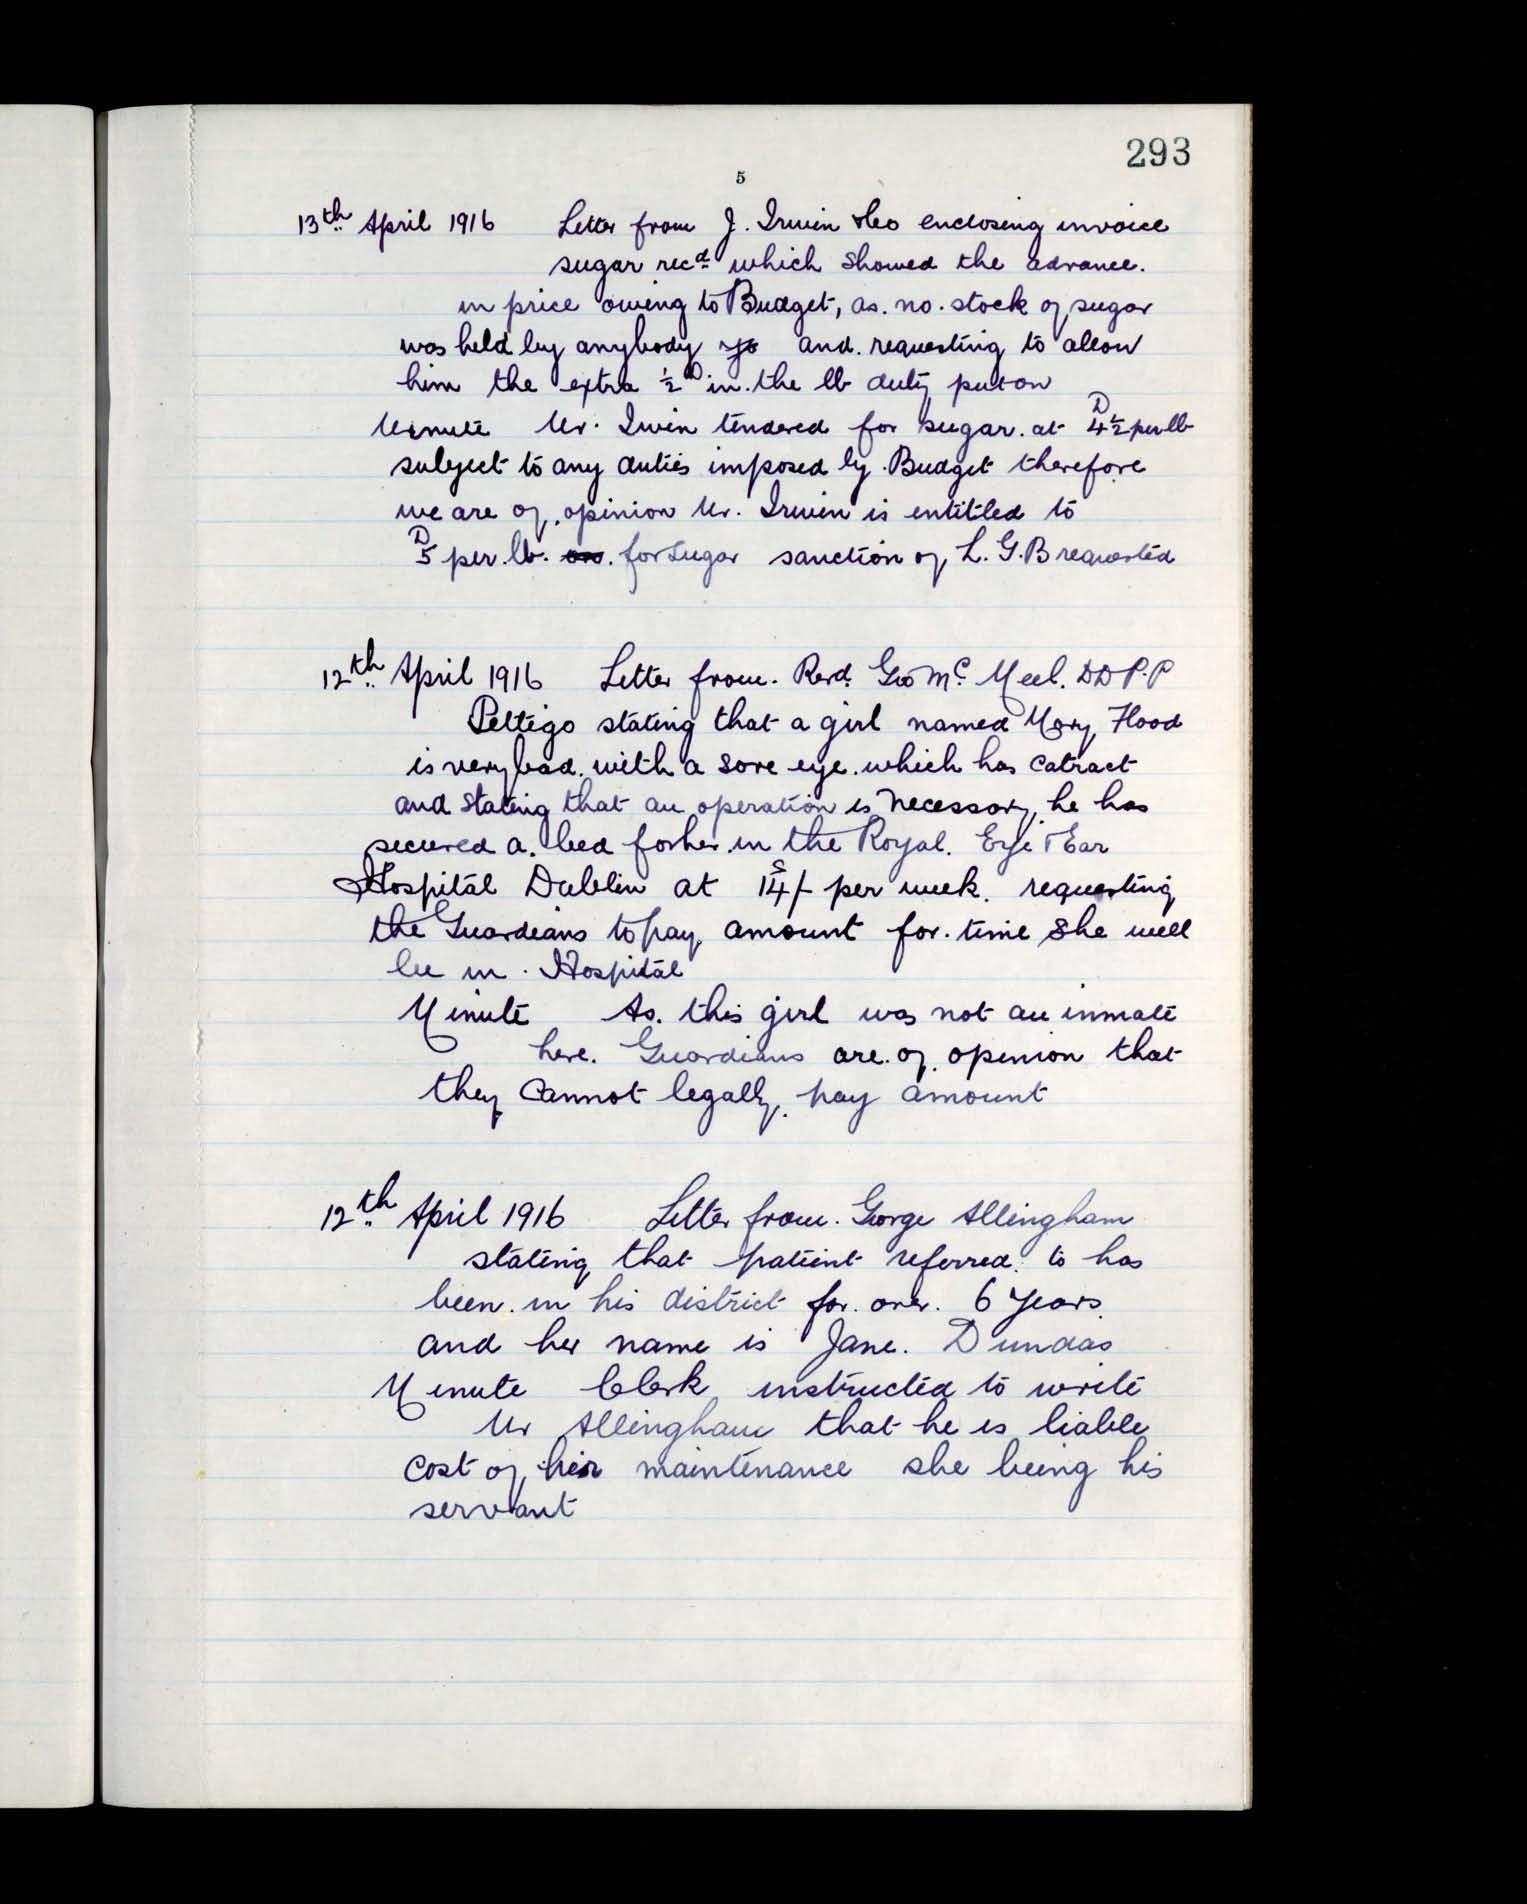 293
5
13th April 1916 Letter from J. Irwin & Co enclosing invoice
sugar recd which showed the advance.
in price owing to Budget, as. no. stock of sugar
was held by anybody and. requesting to allow
him the extra ½D in. the lb duty put on
Minute Mr. Irwin tendered for sugar. at 4½D per lb
subject to any duties imposed by. Budget therefore
we are of. opinion Mr. Irwin is entitled to
5D per. lb. for sugar sanction of L. G. B requested
12th April 1916 Letter from. Revd. Geo Mc. Meel. DD P.P
Pettigo stating that a girl named Mary Flood
is very bad. with a sore eye. which has catract
and stating that an operation is necessary, he has
secured a. bed for her. in the Royal. Eye & Ear
Hospital Dublin at 14S/- per week. requesting
the Guardians to pay amount for. time she will
be in. Hospital
Minute As. this girl was not an inmate
here. Guardians are. of. opinion that
they cannot legally. pay amount
12th April 1916 Letter from. George Allingham
stating that patient referred. to has
been. in his district for. over. 6 years
and her name is Jane. Dundas
Minute Clerk instructed to write
Mr Allingham that he is liable
cost of her maintenance she being his
servant